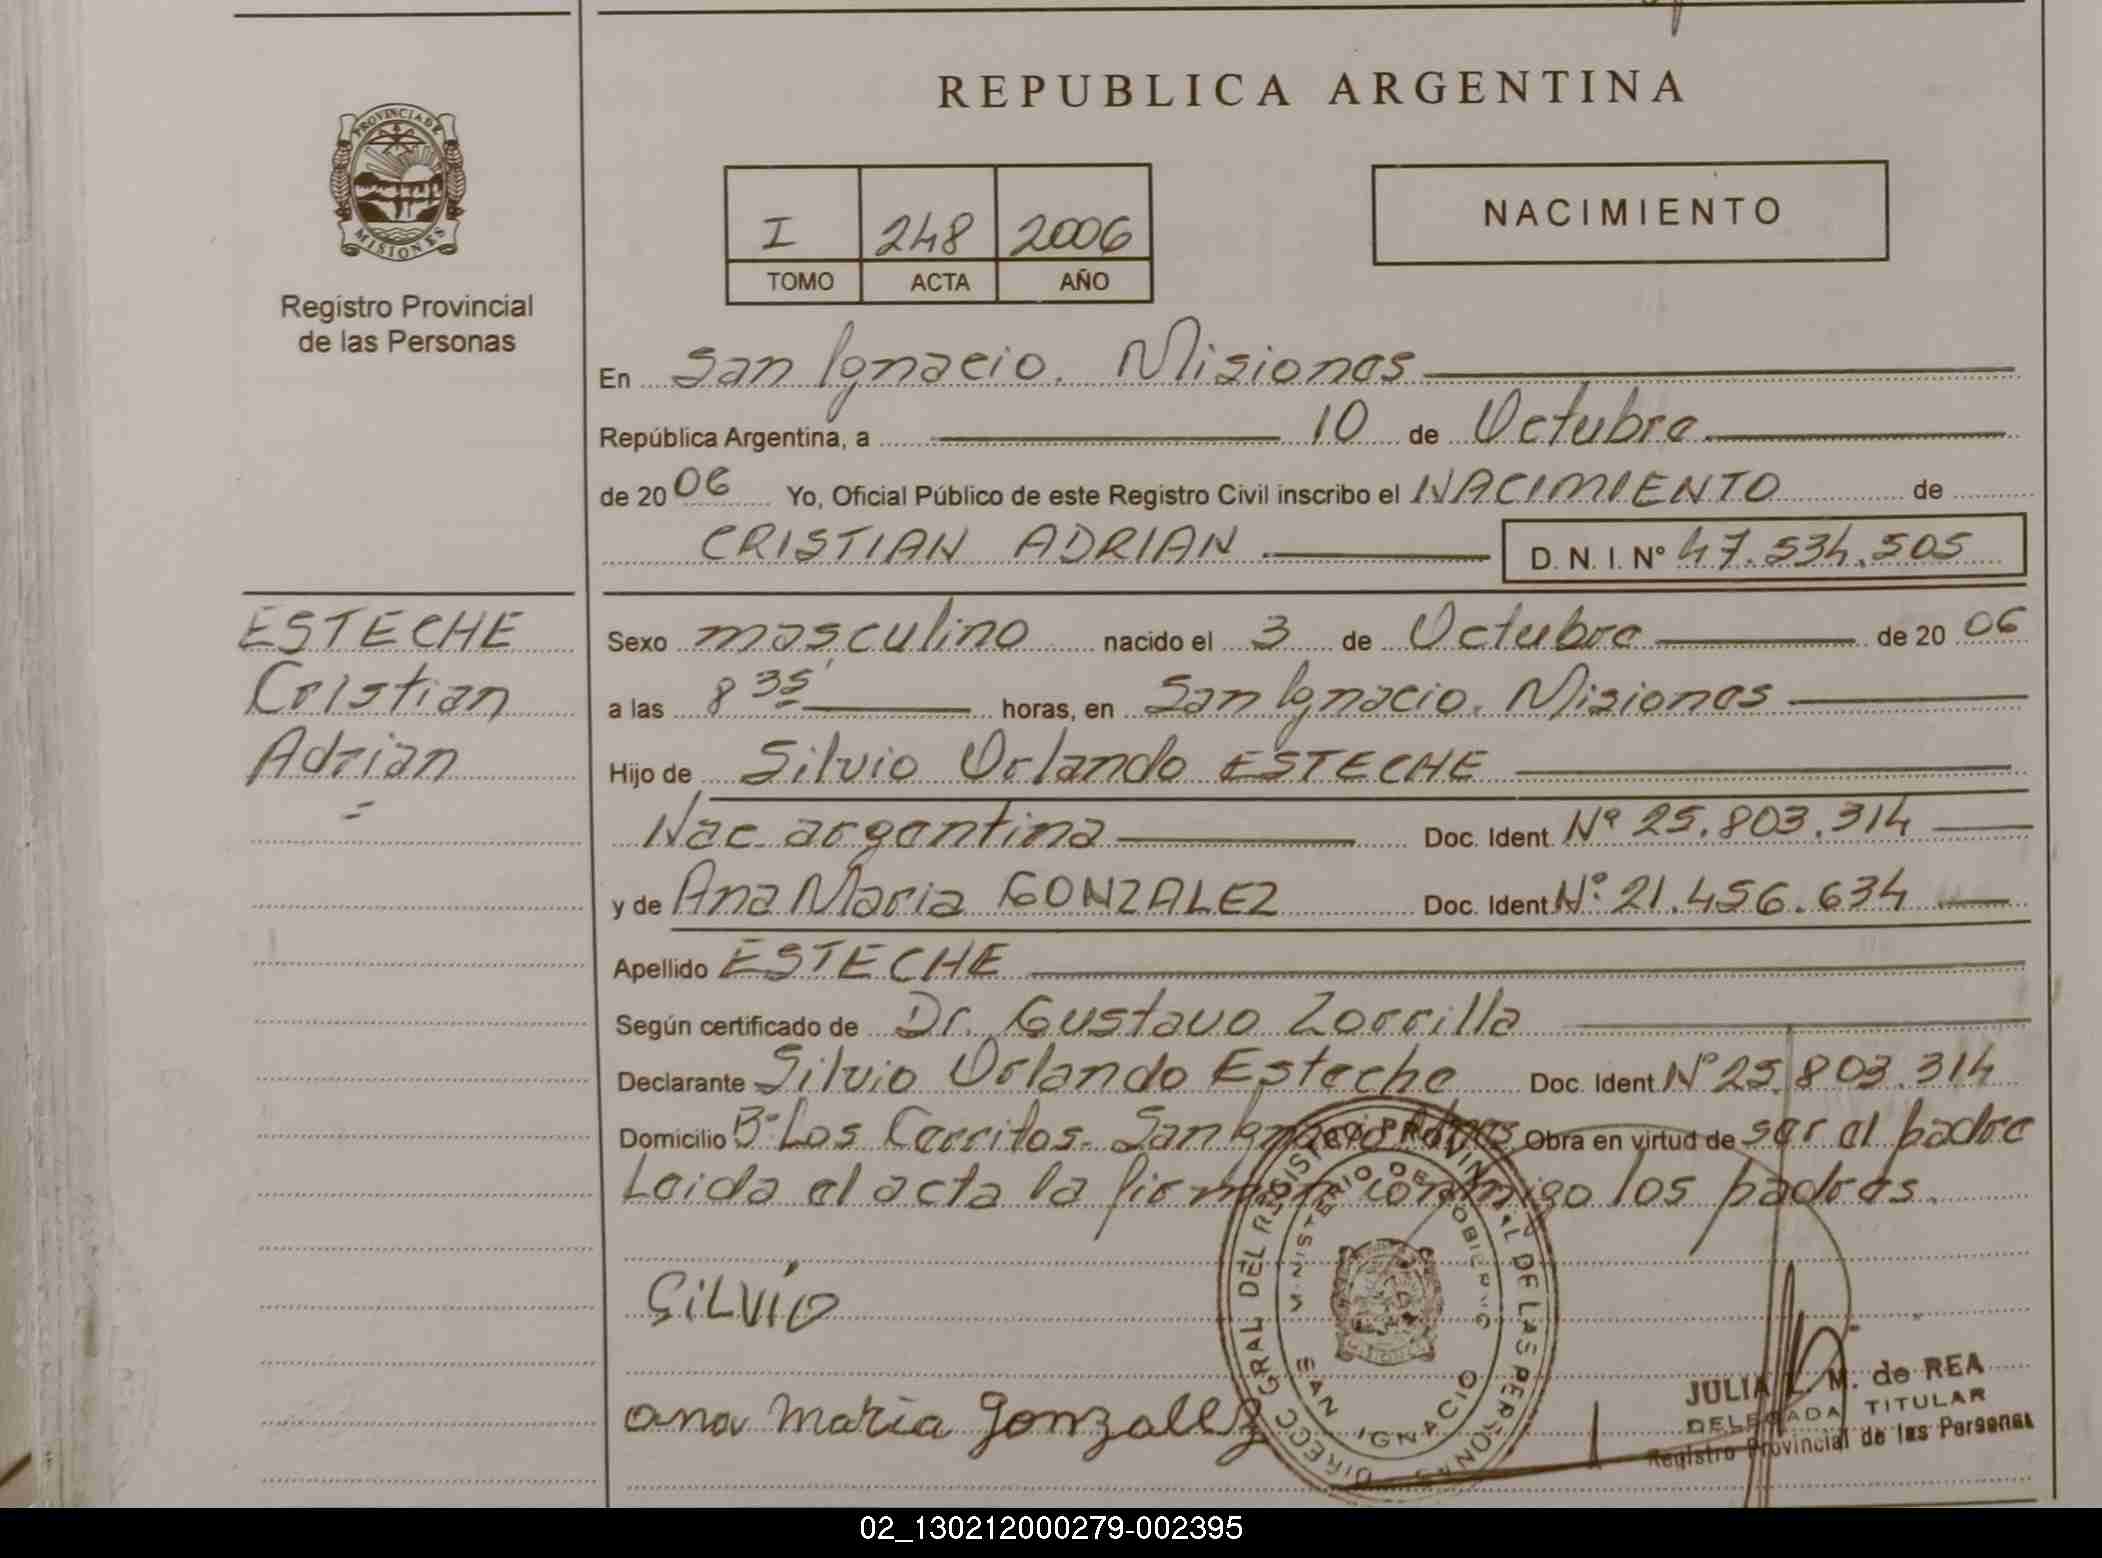 REPUBLICA ARGENTINA
PROVINCIA DE
MISIONES
Registro Provincial
de las Personas
I 248 2006
TOMO ACTA AÑO
NACIMIENTO
En San Ignacio. Misiones
República Argentina, a 10 de Octubre
de 2006 Yo, Oficial Público de este Registro Civil inscribo el NACIMIENTO de
CRISTIAN ADRIAN D. N. I. Nº 47.534.505
ESTECHE
Cristian
Adrian
Sexo masculino nacido el 3 de Octubre de 2006
a las 8 35' horas, en San Ignacio. Misiones
Hijo de Silvio Orlando ESTECHE
Nac. argentina Doc. Ident. Nº 25.803.314
y de Ana Maria GONZALEZ Doc. Ident. Nº 21.456.634
Apellido ESTECHE
Según certificado de Dr. Gustavo Zorrilla
Declarante Silvio Orlando Esteche Doc. Ident. Nº 25.803.314
Domicilio Bº Los Cerritos. San Ignacio Mnes Obra en virtud de ser el padre
Leida el acta la firman conmigo los padres.
SiLVIO
ana maria gonzallez
DIRECC GRAL DEL REGISTRO PROVINCIAL DE LAS PERSONAS
MINISTERIO DE GOBIERNO
SAN IGNACIO
MISIONES
JULIA L. M. de REA
DELEGADA TITULAR
Registro Provincial de las Personas
02_130212000279-002395